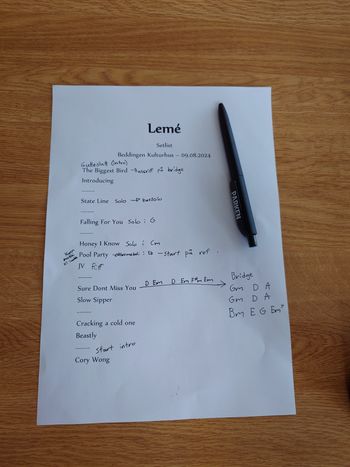 Lemé
Setlist
Beddingen Kulturhus – 09.08.2024
(Intro)
The Biggest Bird → på bridge
Introducing
State Line Solo →
Falling For You Solo : G
Honey I Know Solo : Cm
Pool Party → start på ref.
IV F#
Sure Dont Miss You D Em D Em F#m Em → Bridge
Slow Sipper Gm D A
Gm D A
Bm E G Em7
Cracking a cold one
Beastly
Start intro
Cory Wong
PARKEN